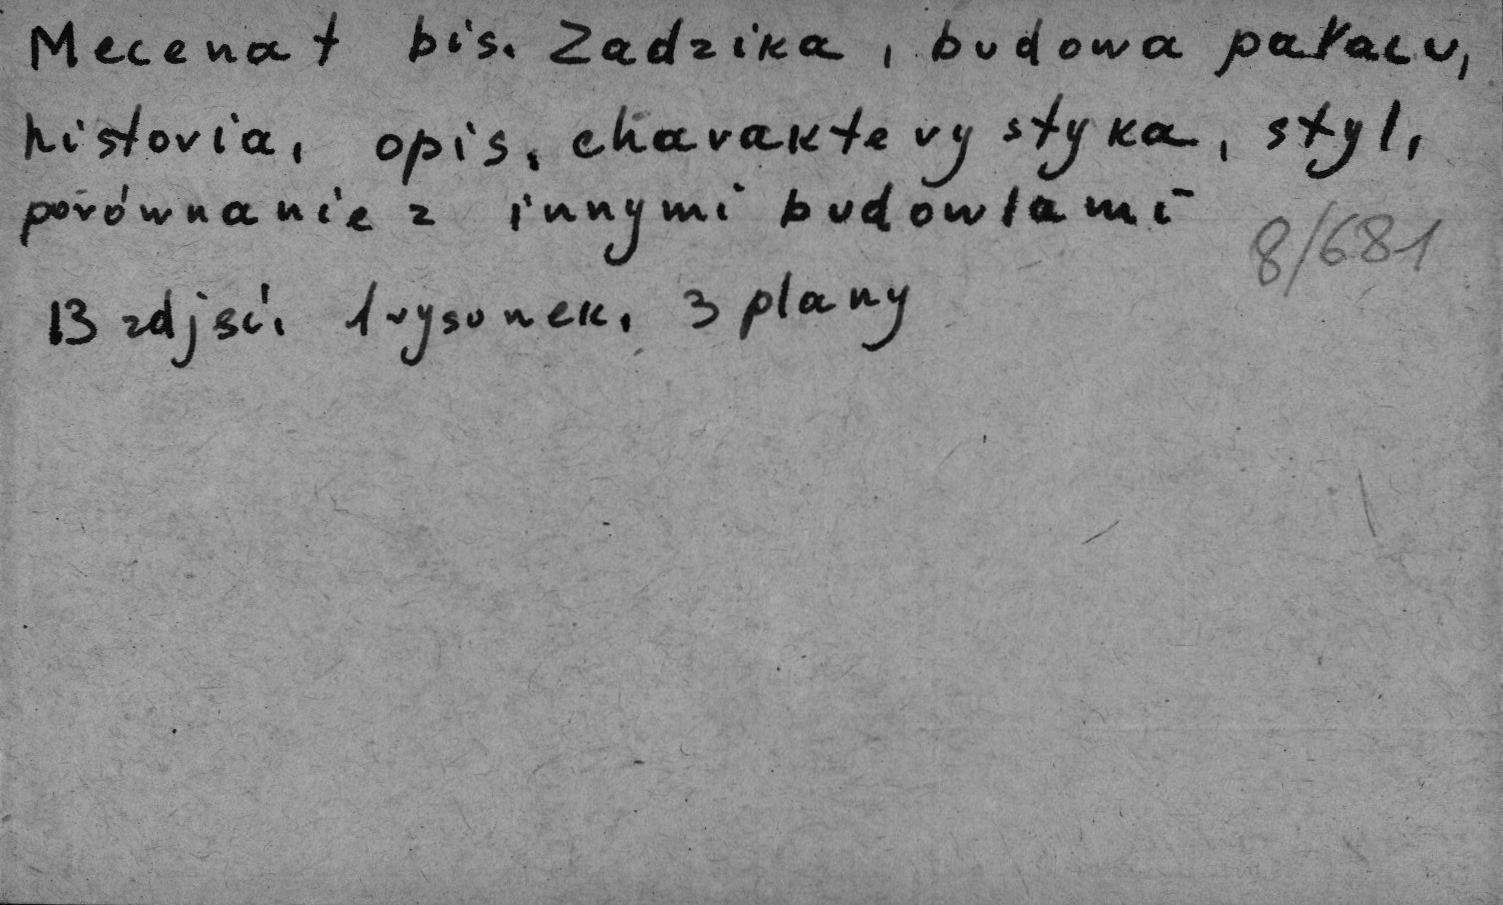 Mecenat bis. Zadzika, budowa pałacu,
historia, opis, charakterystyka, styl,
porównanie z innymi budowlami
8/681
13 zdjęć, 1 rysunek, 3 plany